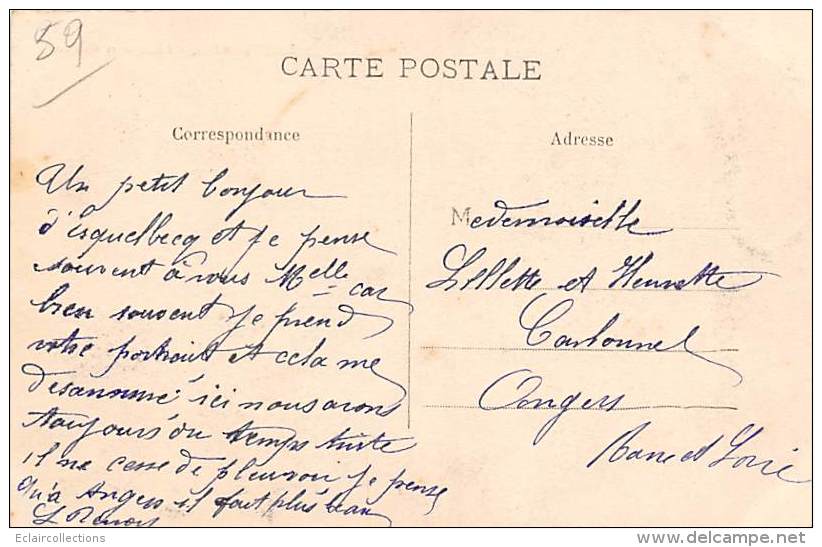 59
CARTE POSTALE
Correspondance
Adresse
Un petit bonjour
d'Esquelbecq et je pense
souvent à vous Melle car
bien souvent je prend
votre portrait et cela me
desannuie ici nous avons
toujours du temps triste
il ne cesse de pleuvoir je pense
qu'à Angers il fait plus beau
Medemoiselle
Lillette et Henrette
Carbonnel
Angers
Maine et Loire
Eclaircollections
delcampe.net